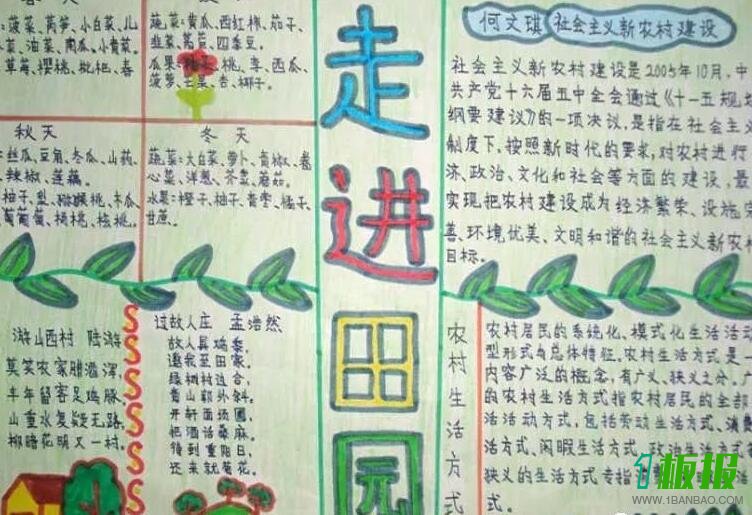 ：菠菜、莴笋、小白菜、儿
菜、油菜、南瓜、小青菜。
草莓、樱桃、枇杷、春
蔬菜：黄瓜、西红柿、茄子、
韭菜、莴苣、四季豆。
瓜果：桃子、桃、李、西瓜、
菠萝、芒果、杏、椰子。
秋天
：丝瓜、豆角、冬瓜、山药、
、辣椒、莲藕。
柚子、梨、猕猴桃、木瓜、
葡萄、杨桃、核桃。
冬天
蔬菜：大白菜、萝卜、青椒、卷
心菜、洋葱、芥菜、蘑菇。
水果：橙子、柚子、青枣、橘子、
甘蔗。
走进田园
何文琪 社会主义新农村建设
社会主义新农村建设是2005年10月，中
共产党十六届五中全会通过《十一五规划
纲要建议》的一项决议，是指在社会主义
制度下，按照新时代的要求，对农村进行
济、政治、文化和社会等方面的建设，最
实现把农村建设成为经济繁荣、设施完
善、环境优美、文明和谐的社会主义新农村
目标。
游山西村 陆游
莫笑农家腊酒浑，
丰年留客足鸡豚。
山重水复疑无路，
柳暗花明又一村。
过故人庄 孟浩然
故人具鸡黍，
邀我至田家。
绿树村边合，
青山郭外斜。
开轩面场圃，
把酒话桑麻。
待到重阳日，
还来就菊花。
农村生活方式
农村居民的系统化、模式化生活活动
型形式与总体特征。农村生活方式是一
内容广泛的概念，有广义、狭义之分。广
的农村生活方式指农村居民的全部
活活动方式，包括劳动生活方式、消费
活方式、闲暇生活方式、政治生活方式
狭义的生活方式专指消费
式。
板报
WWW.1BANBAO.COM